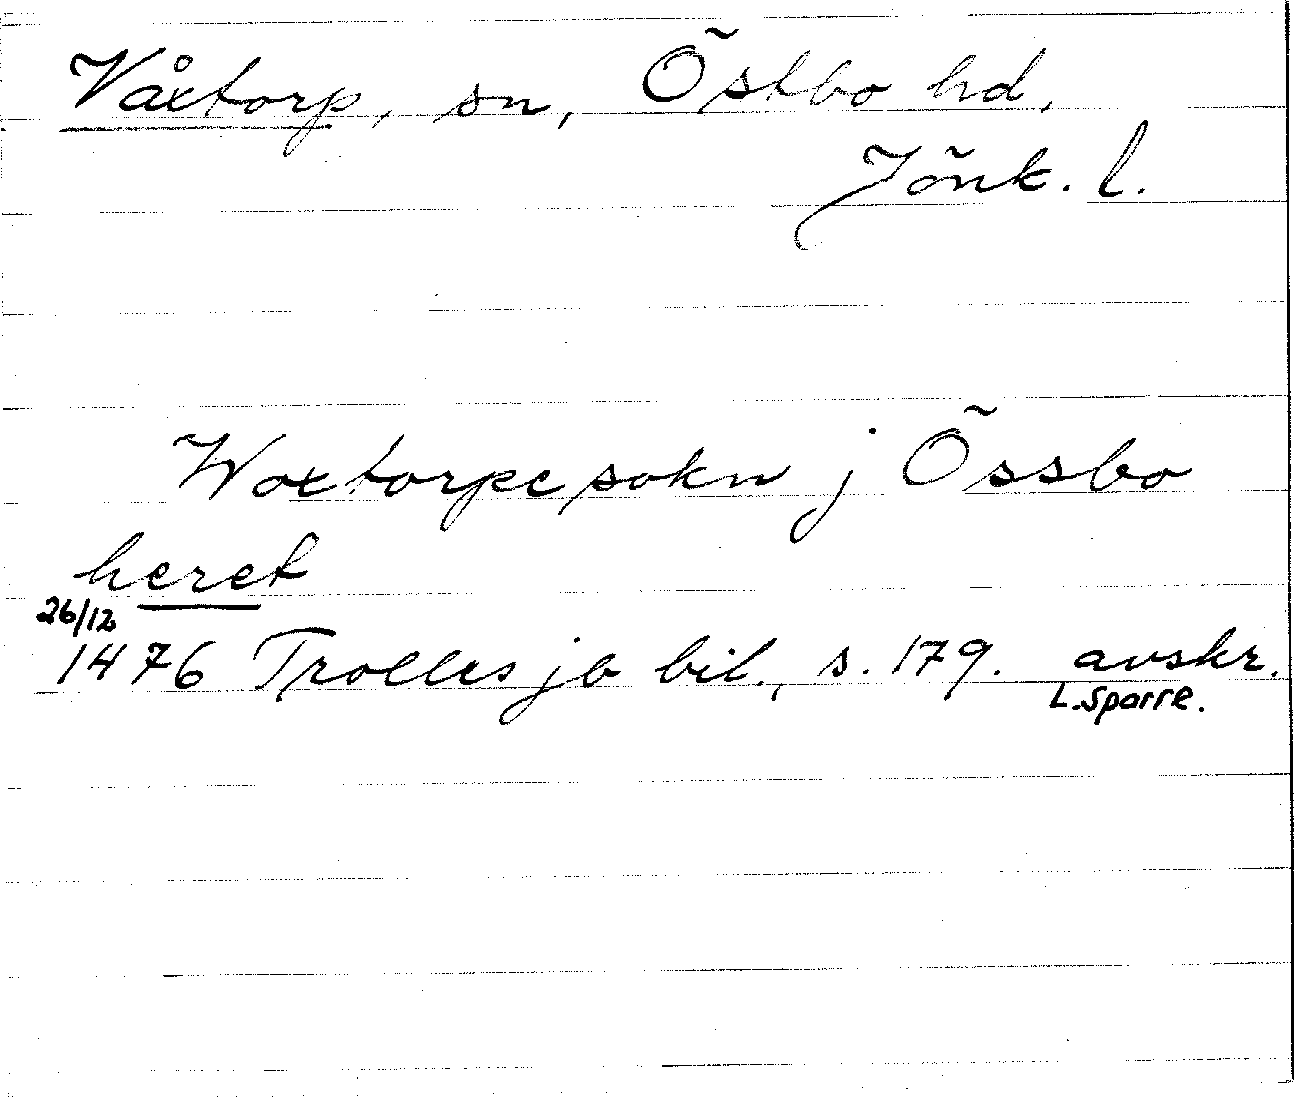 Våxtorp, sn, Östbo hd,
Jönk. l.
Woxtorpe sokn j Össbo
heret
26/12
1476 Trolles jb bil., s. 179. avskr.
L. Sparre.